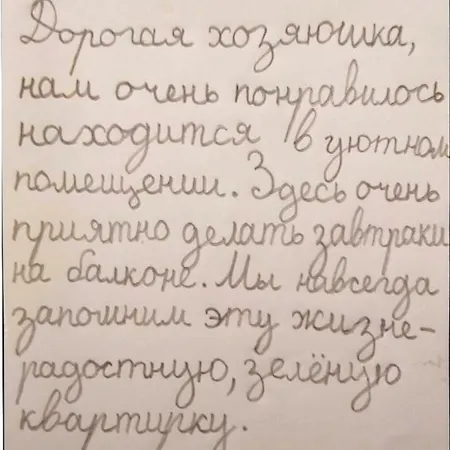 Дорогая хозяюшка,
нам очень понравилось
находится в уютном
помещении. Здесь очень
приятно делать завтраки
на балконе. Мы навсегда
запомним эту жизне-
радостную, зелёную
квартирку.